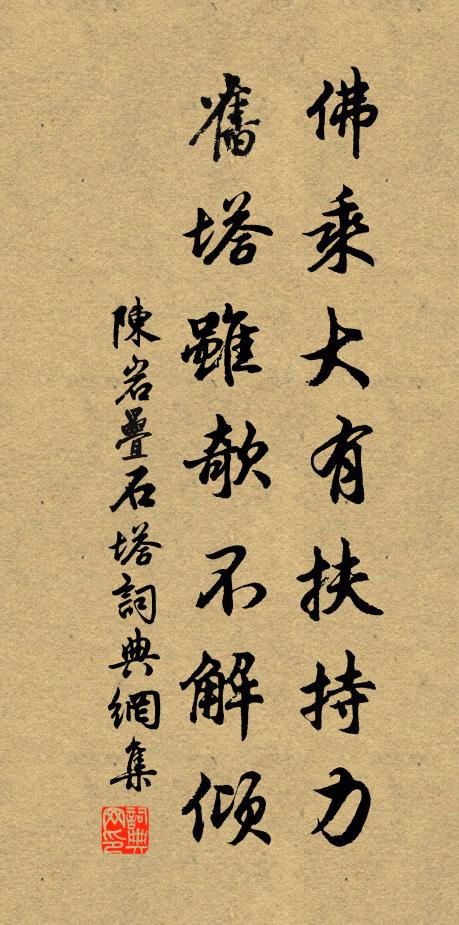 佛乘大有扶持力
舊塔雖欹不解傾
陳岩疊石塔詞典網集
詞典网印